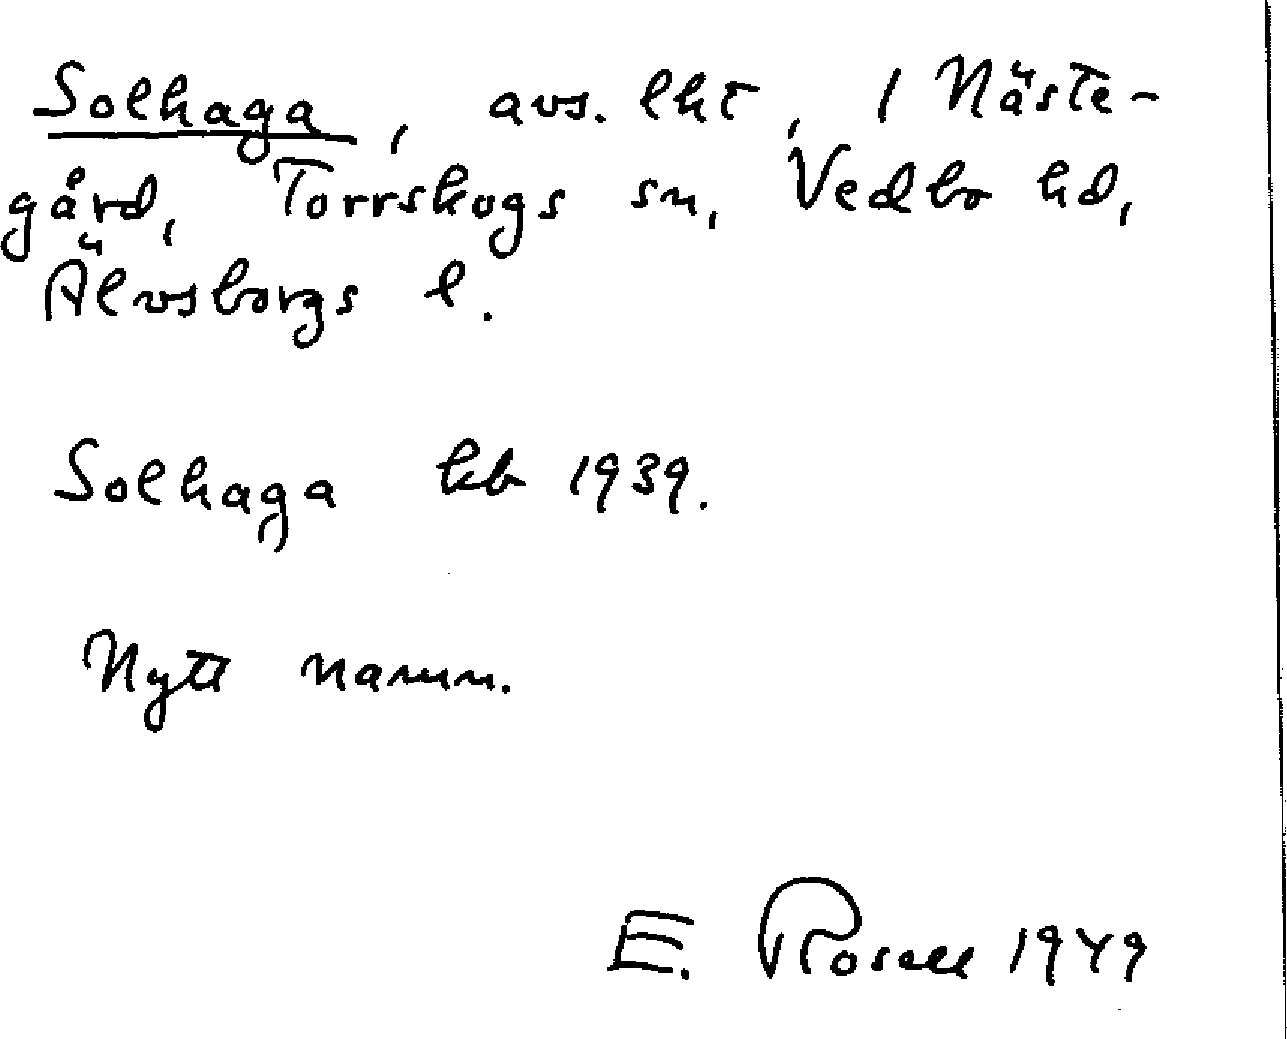 Solhaga, avs. lht, 1 Näste-
gård, Torrskogs sn, Vedbo hd,
Älvsborgs l.
Solhaga kb 1939.
Nytt namn.
E. Rosell 1949